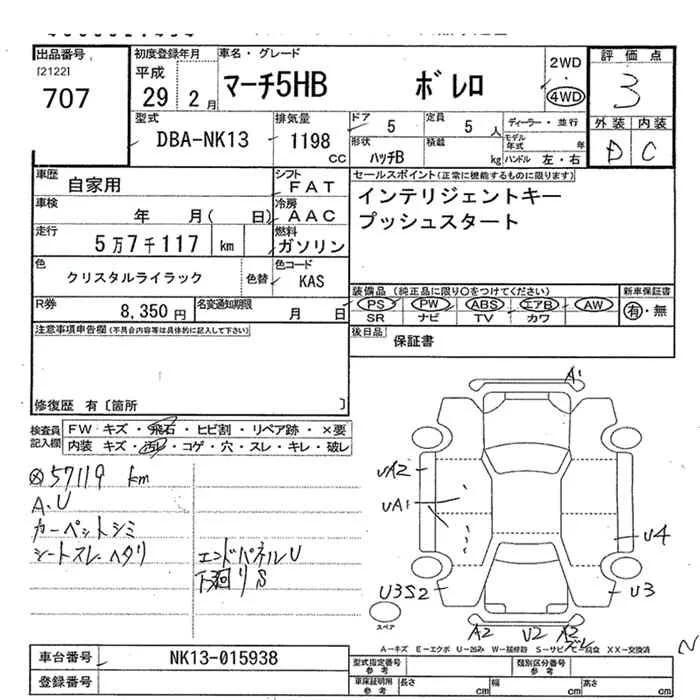 出品番号
[2122]
707
初度登録年月
平成
29 2 月
車名 ・ グレード
マーチ5HB ボレロ
2WD
・
4WD
評価点
3
型式
DBA-NK13
排気量
1198
CC
ドア
5
定員
5 人
ディーラー ・ 並行
形状
ハッチB
積載
kg
モデル
年式
年
ハンドル 左 ・ 右
外装 内装
D C
車歴
自家用
シフト
FAT
車検
年 月( 日)
冷房
AAC
走行
5万7千117 km
燃料
ガソリン
色
クリスタルライラック
色替
色コード
KAS
R券
8,350 円
名変通知期限
月 日
セールスポイント(正常に機能するものに限ります)
インテリジェントキー
プッシュスタート
装備品 (純正品に限り○をつけてください)
PS PW ABS エアB AW
SR ナビ TV カワ
新車保証書
有・無
注意事項申告欄(不具合内容等は具体的に記入して下さい)
後日品
保証書
修復歴 有〔箇所 〕
検査員
記入欄
FW キズ ・ 飛石 ・ ヒビ割 ・ リペア跡 ・ ×要
内装 キズ ・ 汚レ ・ コゲ ・ 穴 ・ スレ ・ キレ ・ 破レ
57119 km
A.U
カーペットシミ
シートスレ ヘタリ
エンドパネルU
下廻りS
A1
UA2
UA1
U4
U3S2
U3
スペア
A2 U2 A2
A－キズ E－エクボ U－凹み W－補修跡 S－サビ C－腐食 XX－交換済
車台番号
NK13-015938
登録番号
型式指定番号
参考
類別区分番号
参考
車庫証明用
参考
長さ cm
幅 cm
高さ cm